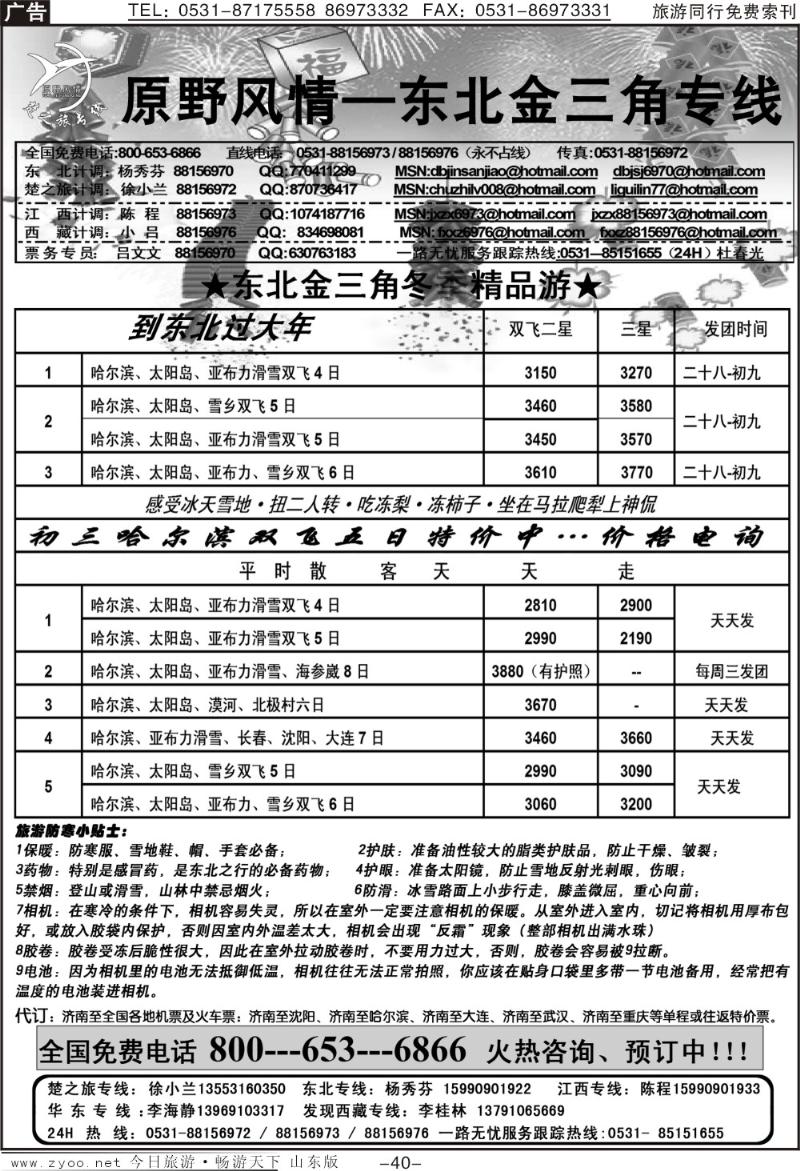 广告
TEL: 0531-87175558 86973332 FAX: 0531-86973331
旅游同行免费索刊
原野风情
楚之旅高
原野风情—东北金三角专线
全国免费电话:800-653-6866 直线电话: 0531-88156973 / 88156976（永不占线） 传真:0531-88156972
东 北计调: 杨秀芬 88156970 QQ:770411299 MSN:dbjinsanjiao@hotmail.com dbjsj6970@hotmail.com
楚之旅计调: 徐小兰 88156972 QQ:870736417 MSN:chuzhilv008@hotmail.com liguilin77@hotmail.com
江 西计调: 陈 程 88156973 QQ:1074187716 MSN:jxzx6973@hotmail.com jxzx88156973@hotmail.com
西 藏计调: 小 吕 88156976 QQ: 834698081 MSN: fxxz6976@hotmail.com fxxz88156976@hotmail.com
票务专员: 吕文文 88156970 QQ:630763183 一路无忧服务跟踪热线:0531—85151655（24H）杜春光
★东北金三角冬季精品游★
到东北过大年 双飞二星 三星 发团时间
1 哈尔滨、太阳岛、亚布力滑雪双飞4日 3150 3270 二十八-初九
2 哈尔滨、太阳岛、雪乡双飞5日 3460 3580 二十八-初九
哈尔滨、太阳岛、亚布力滑雪双飞5日 3450 3570
3 哈尔滨、太阳岛、亚布力、雪乡双飞6日 3610 3770 二十八-初九
感受冰天雪地·扭二人转·吃冻梨·冻柿子·坐在马拉爬犁上神侃
初三哈尔滨双飞五日特价中…价格电询
平时散客天天走
1 哈尔滨、太阳岛、亚布力滑雪双飞4日 2810 2900 天天发
哈尔滨、太阳岛、亚布力滑雪双飞5日 2990 2190
2 哈尔滨、太阳岛、亚布力滑雪、海参崴8日 3880（有护照） -- 每周三发团
3 哈尔滨、太阳岛、漠河、北极村六日 3670 - 天天发
4 哈尔滨、亚布力滑雪、长春、沈阳、大连7日 3460 3660 天天发
5 哈尔滨、太阳岛、雪乡双飞5日 2990 3090 天天发
哈尔滨、太阳岛、亚布力、雪乡双飞6日 3060 3200
旅游防寒小贴士:
1保暖: 防寒服、雪地鞋、帽、手套必备; 2护肤: 准备油性较大的脂类护肤品，防止干燥、皱裂;
3药物: 特别是感冒药，是东北之行的必备药物; 4护眼: 准备太阳镜，防止雪地反射光刺眼，伤眼;
5禁烟: 登山或滑雪，山林中禁忌烟火; 6防滑: 冰雪路面上小步行走，膝盖微屈，重心向前;
7相机: 在寒冷的条件下，相机容易失灵，所以在室外一定要注意相机的保暖。从室外进入室内，切记将相机用厚布包
好，或放入胶袋内保护，否则因室内外温差太大，相机会出现“反霜”现象（整部相机出满水珠）
8胶卷: 胶卷受冻后脆性很大，因此在室外拉动胶卷时，不要用力过大，否则，胶卷会容易被9拉断。
9电池: 因为相机里的电池无法抵御低温，相机往往无法正常拍照，你应该在贴身口袋里多带一节电池备用，经常把有
温度的电池装进相机。
代订: 济南至全国各地机票及火车票: 济南至沈阳、济南至哈尔滨、济南至大连、济南至武汉、济南至重庆等单程或往返特价票。
全国免费电话 800---653---6866 火热咨询、预订中!!!
楚之旅专线: 徐小兰13553160350 东北专线: 杨秀芬 15990901922 江西专线: 陈程15990901933
华 东 专 线 :李海静13969103317 发现西藏专线: 李桂林 13791065669
24H 热 线: 0531-88156972 / 88156973 / 88156976 一路无忧服务跟踪热线:0531- 85151655
www.zyoo.net 今日旅游·畅游天下 山东版 -40-